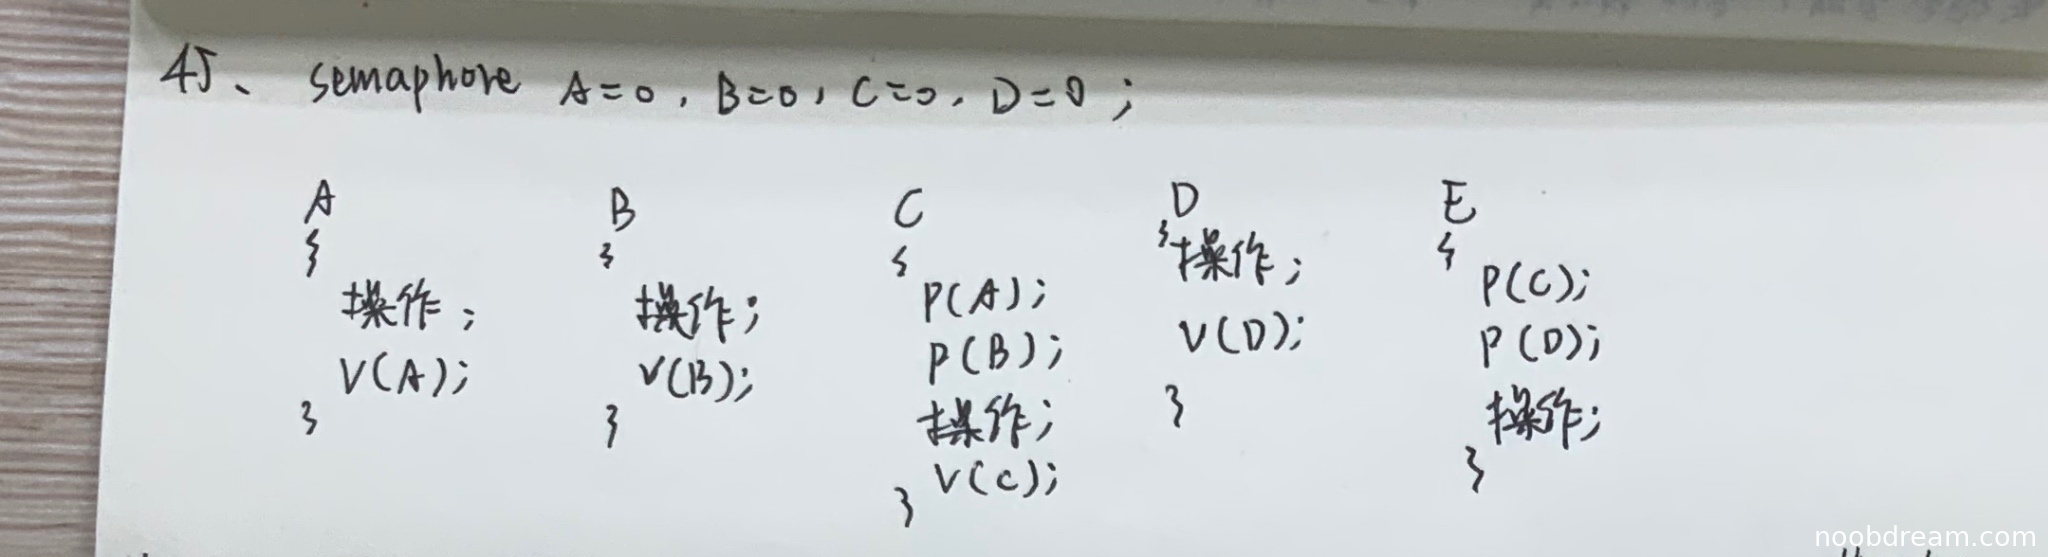 45、 semaphore A=0, B=0, C=0, D=0;
A
{
操作;
V(A);
}
B
{
操作;
V(B);
}
C
{
P(A);
P(B);
操作;
V(C);
}
D
{
操作;
V(D);
}
E
{
P(C);
P(D);
操作;
}
noobdream.com